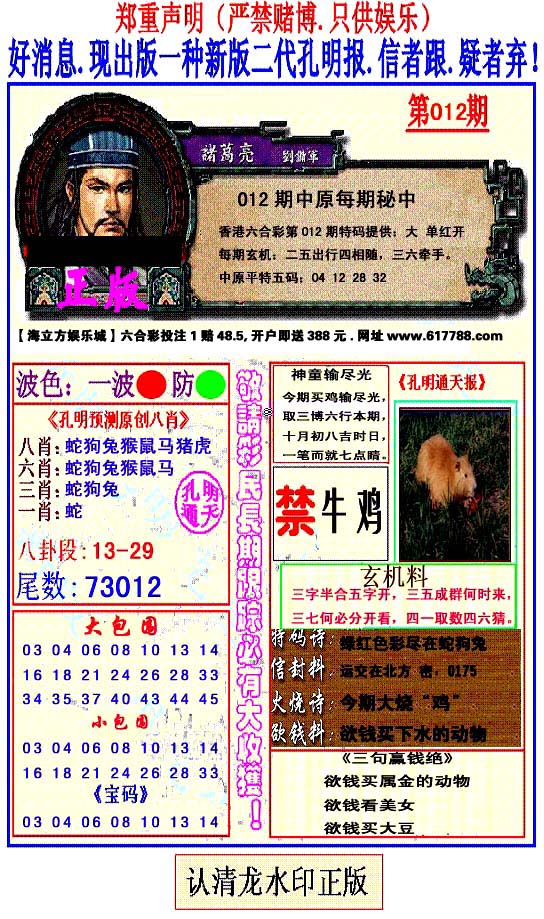 郑重声明（严禁赌博.只供娱乐）
好消息.现出版一种新版二代孔明报.信者跟.疑者弃！
第012期
諸葛亮 劉備軍
012 期中原每期秘中
香港六合彩第 012 期特码提供：大 单红开
每期玄机：二五出行四相随，三六牵手。
中原平特五码：04 12 28 32
正版
【海立方娱乐城】六合彩投注 1 赔 48.5, 开户即送 388 元 . 网址 www.617788.com
波色：一波 防
《孔明预测原创八肖》
八肖：蛇狗兔猴鼠马猪虎
六肖：蛇狗兔猴鼠马
三肖：蛇狗兔
一肖：蛇
孔明
通天
八卦段：13-29
尾数：73012
大包围
03 04 06 08 10 13 14
16 18 21 24 26 28 33
34 35 37 40 43 44 45
小包围
03 04 06 08 10 13 14
16 18 21 24 26 28 33
《宝码》
03 04 06 08 10 13 14
敬請彩民長期跟踪必有大收獲！
神童输尽光
今期买鸡输尽光，
取三博六行本期，
十月初八吉时日，
一笔而就七点睛。
《孔明通天报》
禁牛鸡
玄机料
三字半合五字开， 三五成群何时来，
三七何必分开看， 四一取数四六猜。
特码诗：绿红色彩尽在蛇狗兔
信封料：运交在北方 密，0175
火烧诗：今期大烧“鸡”
欲钱料：欲钱买下水的动物
《三句赢钱绝》
欲钱买属金的动物
欲钱看美女
欲钱买大豆
认清龙水印正版